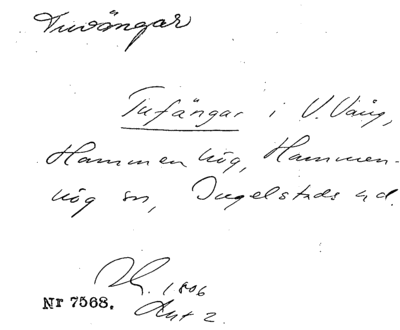 Tuvängar
Tufängar i V. Vång,
Hammenhög, Hammen-
hög sn, Ingelstads hd.
1806
Nr 7568. Akt 2.